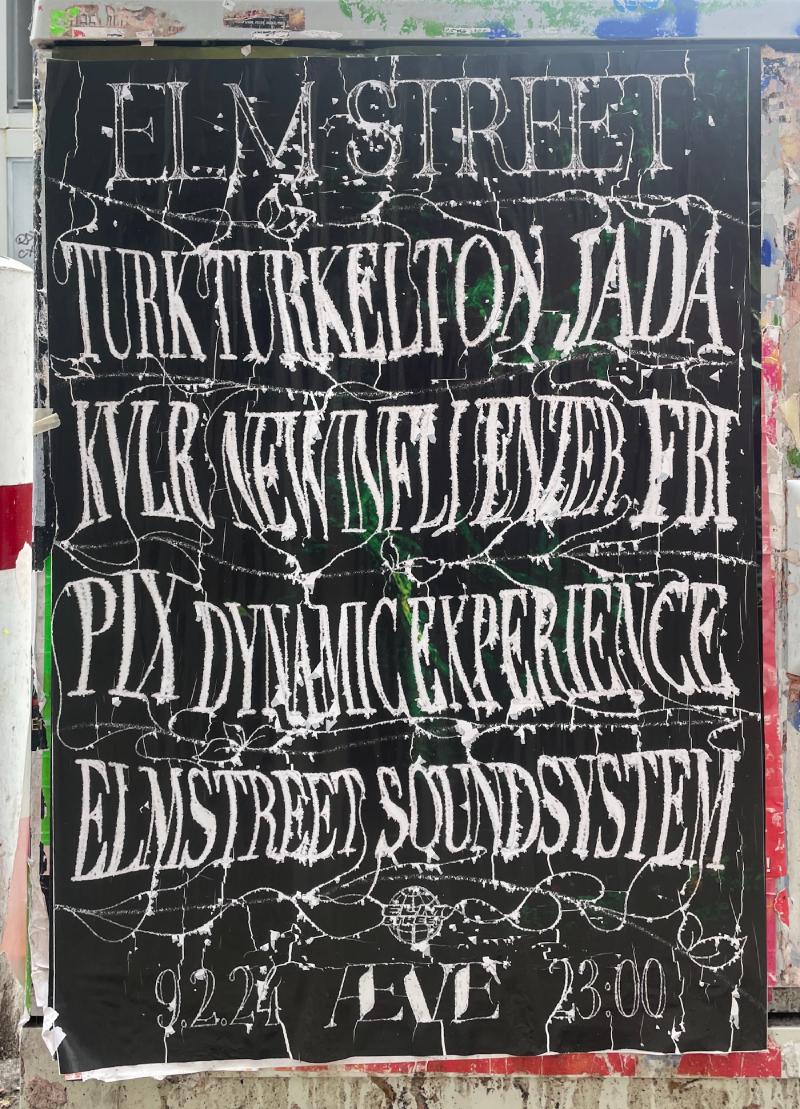 ELM STREET
TURK TURKELTON JADA
KVLR NEW INFLUENZER FBI
PIX DYNAMIC EXPERIENCE
ELMSTREET SOUNDSYSTEM
ELM
STREET
9.2.24 ÆVE 23:00